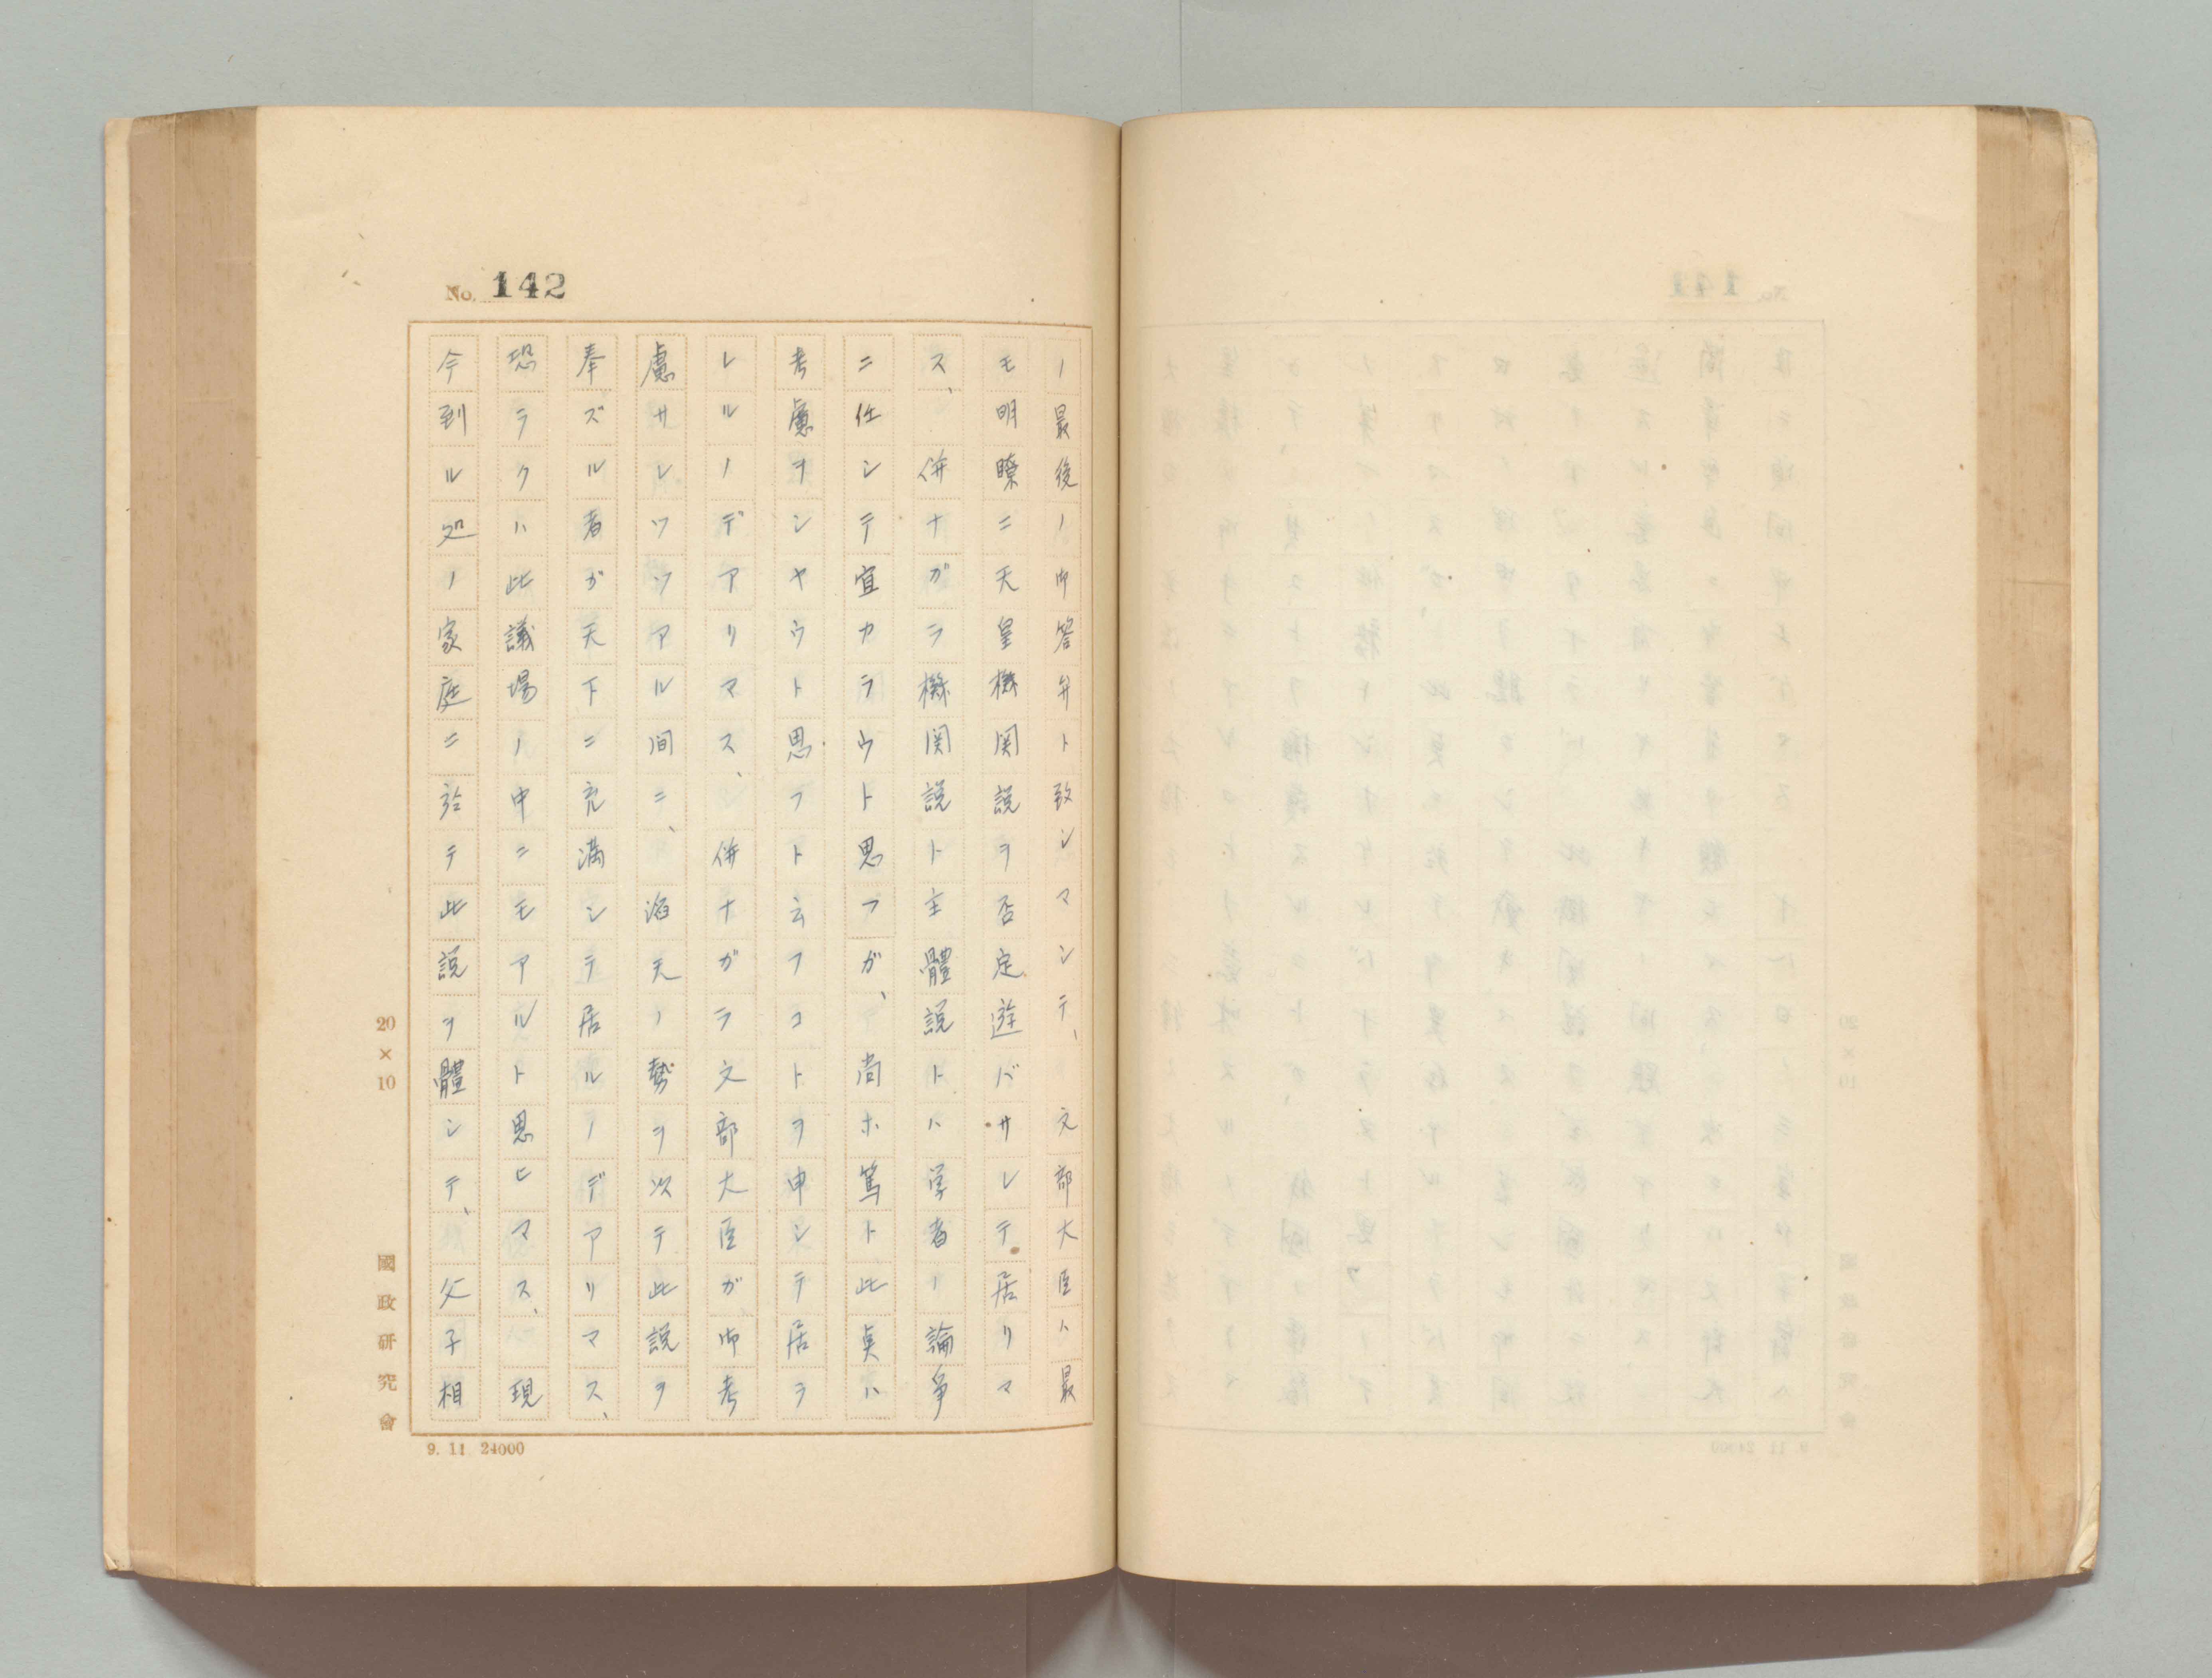 No. 142
ノ最後ノ御答弁ト致シマシテ、文部大臣ハ最
モ明瞭ニ天皇機関説ヲ否定遊バサレテ居リマ
ス、併ナガラ機関説ト主體説トハ学者ノ論爭
ニ任シテ宜カラウト思フガ、尚ホ篤ト此點ハ
考慮ヲシヤウト思フト云フコトヲ申シテ居ラ
レルノデアリマス、併ナガラ文部大臣ガ御考
慮サレツツアル間ニ、滔天ノ勢ヲ以テ此説ヲ
奉ズル者ガ天下ニ充満シテ居ルノデアリマス、
恐ラクハ此議場ノ中ニモアルト思ヒマス、現
今到ル処ノ家庭ニ於テ此説ヲ體シテ、父子相
20×10
國政研究會
9. 11 24000